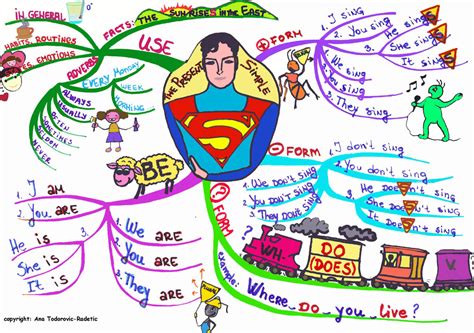 THE PRESENT SIMPLE
USE
IN GENERAL
HABITS, ROUTINES
EMOTIONS
FACTS: THE SUN RISES IN THE EAST
ADVERBS
EVERY MONDAY
WEEK
MORNING
ALWAYS
USUALLY
OFTEN
SOMETIMES
SELDOM
NEVER
+ FORM
1. I sing
2. You sing
3. He sings
She sings
It sings
1. We sing
2. You sing
3. They sing
- FORM
1. I don't sing
2. You don't sing
3. He Doesn't sing
She Doesn't sing
It Doesn't sing
1. We DON'T sing
2. You DON'T sing
3. They DON'T sing
? FORM
WH-
DO
(DOES)
V.
?
example:
Where Do you live?
BE
1. I am
2. You are
3. He is
She is
It is
1. We are
2. You are
3. They are
copyright: Ana Todorovic-Radetic